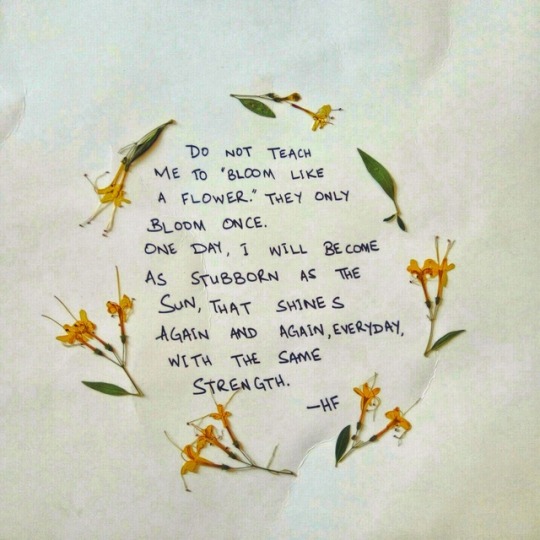 DO NOT TEACH
ME TO "BLOOM LIKE
A FLOWER." THEY ONLY
BLOOM ONCE.
ONE DAY, I WILL BECOME
AS STUBBORN AS THE
SUN, THAT SHINES
AGAIN AND AGAIN, EVERYDAY,
WITH THE SAME
STRENGTH.
—HF